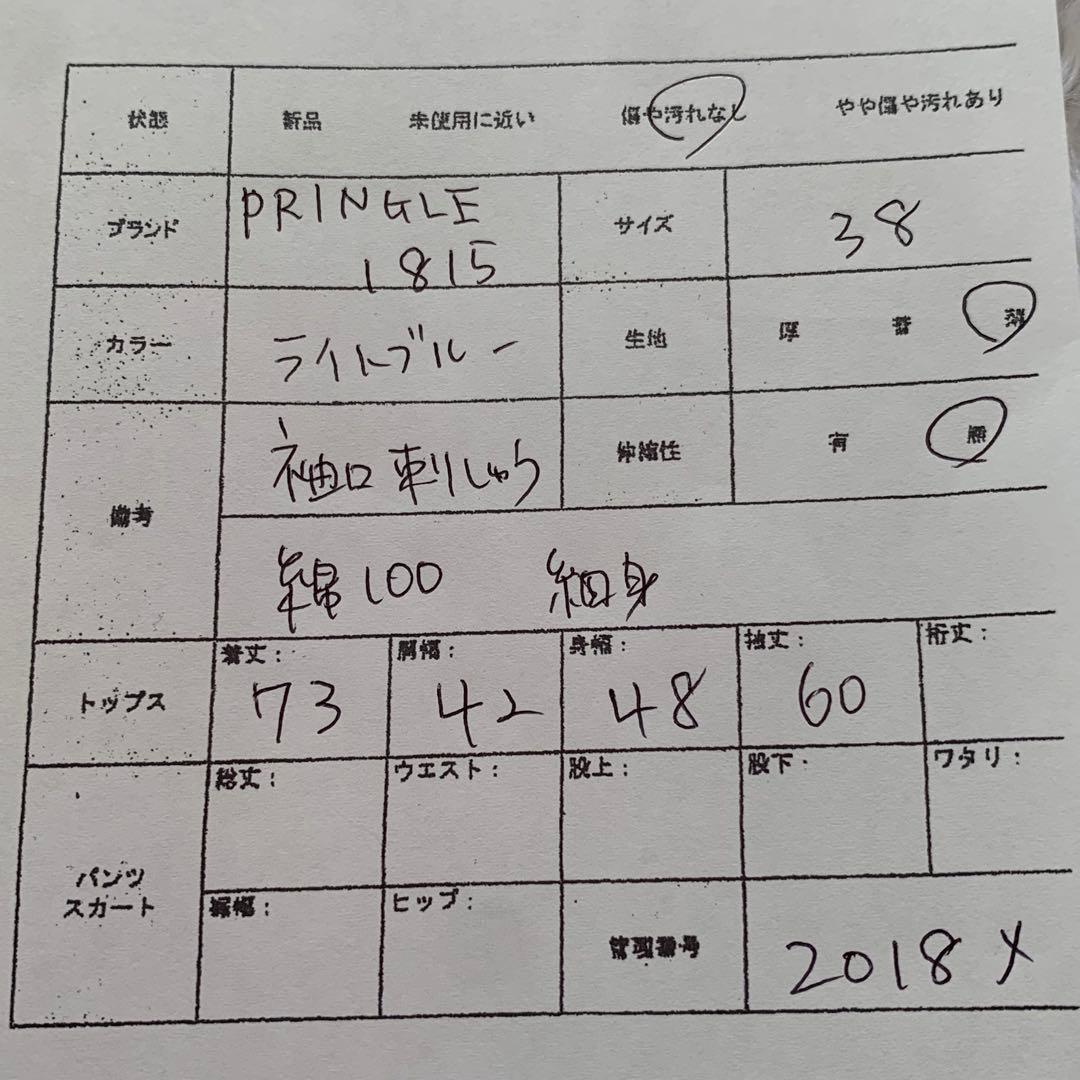 状態 新品 未使用に近い 傷や汚れなし やや傷や汚れあり
ブランド PRINGLE 1815 サイズ 38
カラー ライトブルー 生地 厚 普 薄
備考 袖口刺しゅう 伸縮性 有 無
綿100 細身
トップス 着丈: 73 肩幅: 42 身幅: 48 袖丈: 60 裄丈:
パンツ スカート 総丈: ウエスト: 股上: 股下: ワタリ:
裾幅: ヒップ: 管理番号 2018 メ